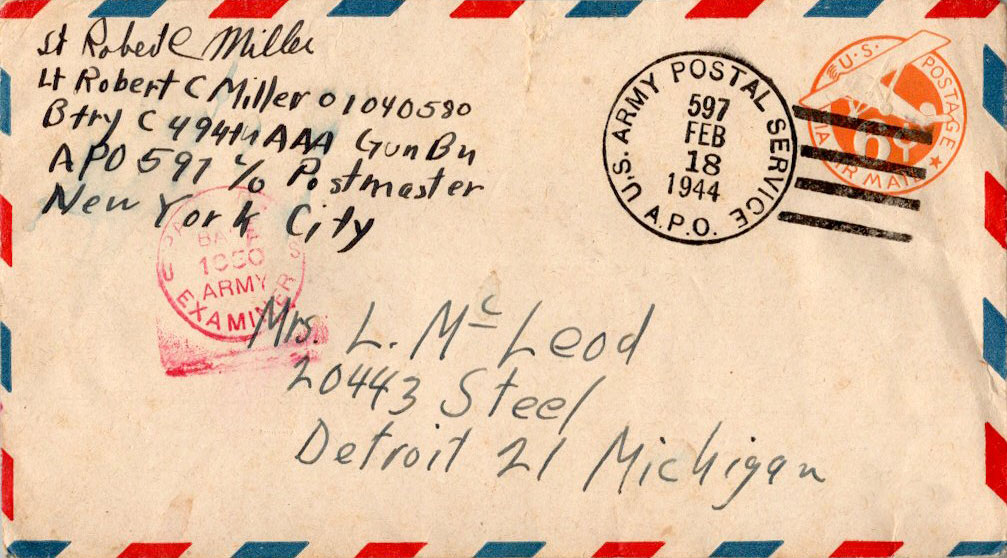 Lt Robert C Miller
Lt Robert C Miller O1040580
Btry C 494th AAA Gun Bn
APO 597 c/o Postmaster
New York City
U.S. ARMY POSTAL SERVICE
597
FEB
18
1944
A.P.O.
U.S. POSTAGE
6¢
VIA AIR MAIL
BASE
ARMY
EXAMINER
Mrs. L. McLeod
20443 Steel
Detroit 21 Michigan